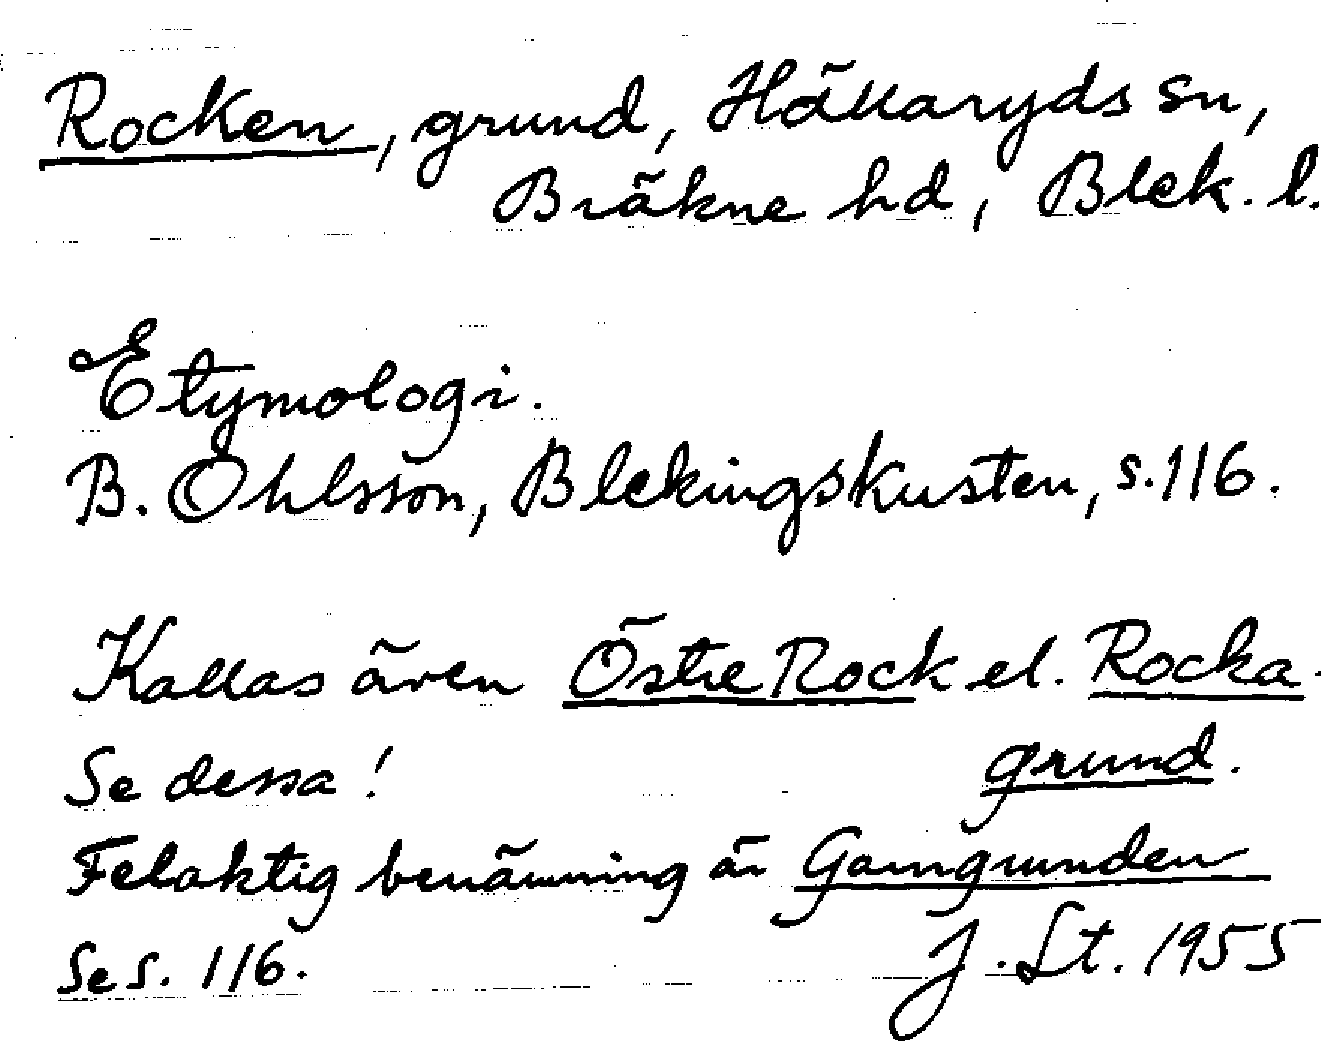 Rocken, grund, Hällaryds sn,
Bräkne hd, Blek. l.
Etymologi.
B. Ohlsson, Blekingskusten, s. 116.
Kallas även Östre Rock el. Rocka-
Se dessa! grund.
Felaktig benämning är Garngrunden
Se s. 116. J. St. 1955